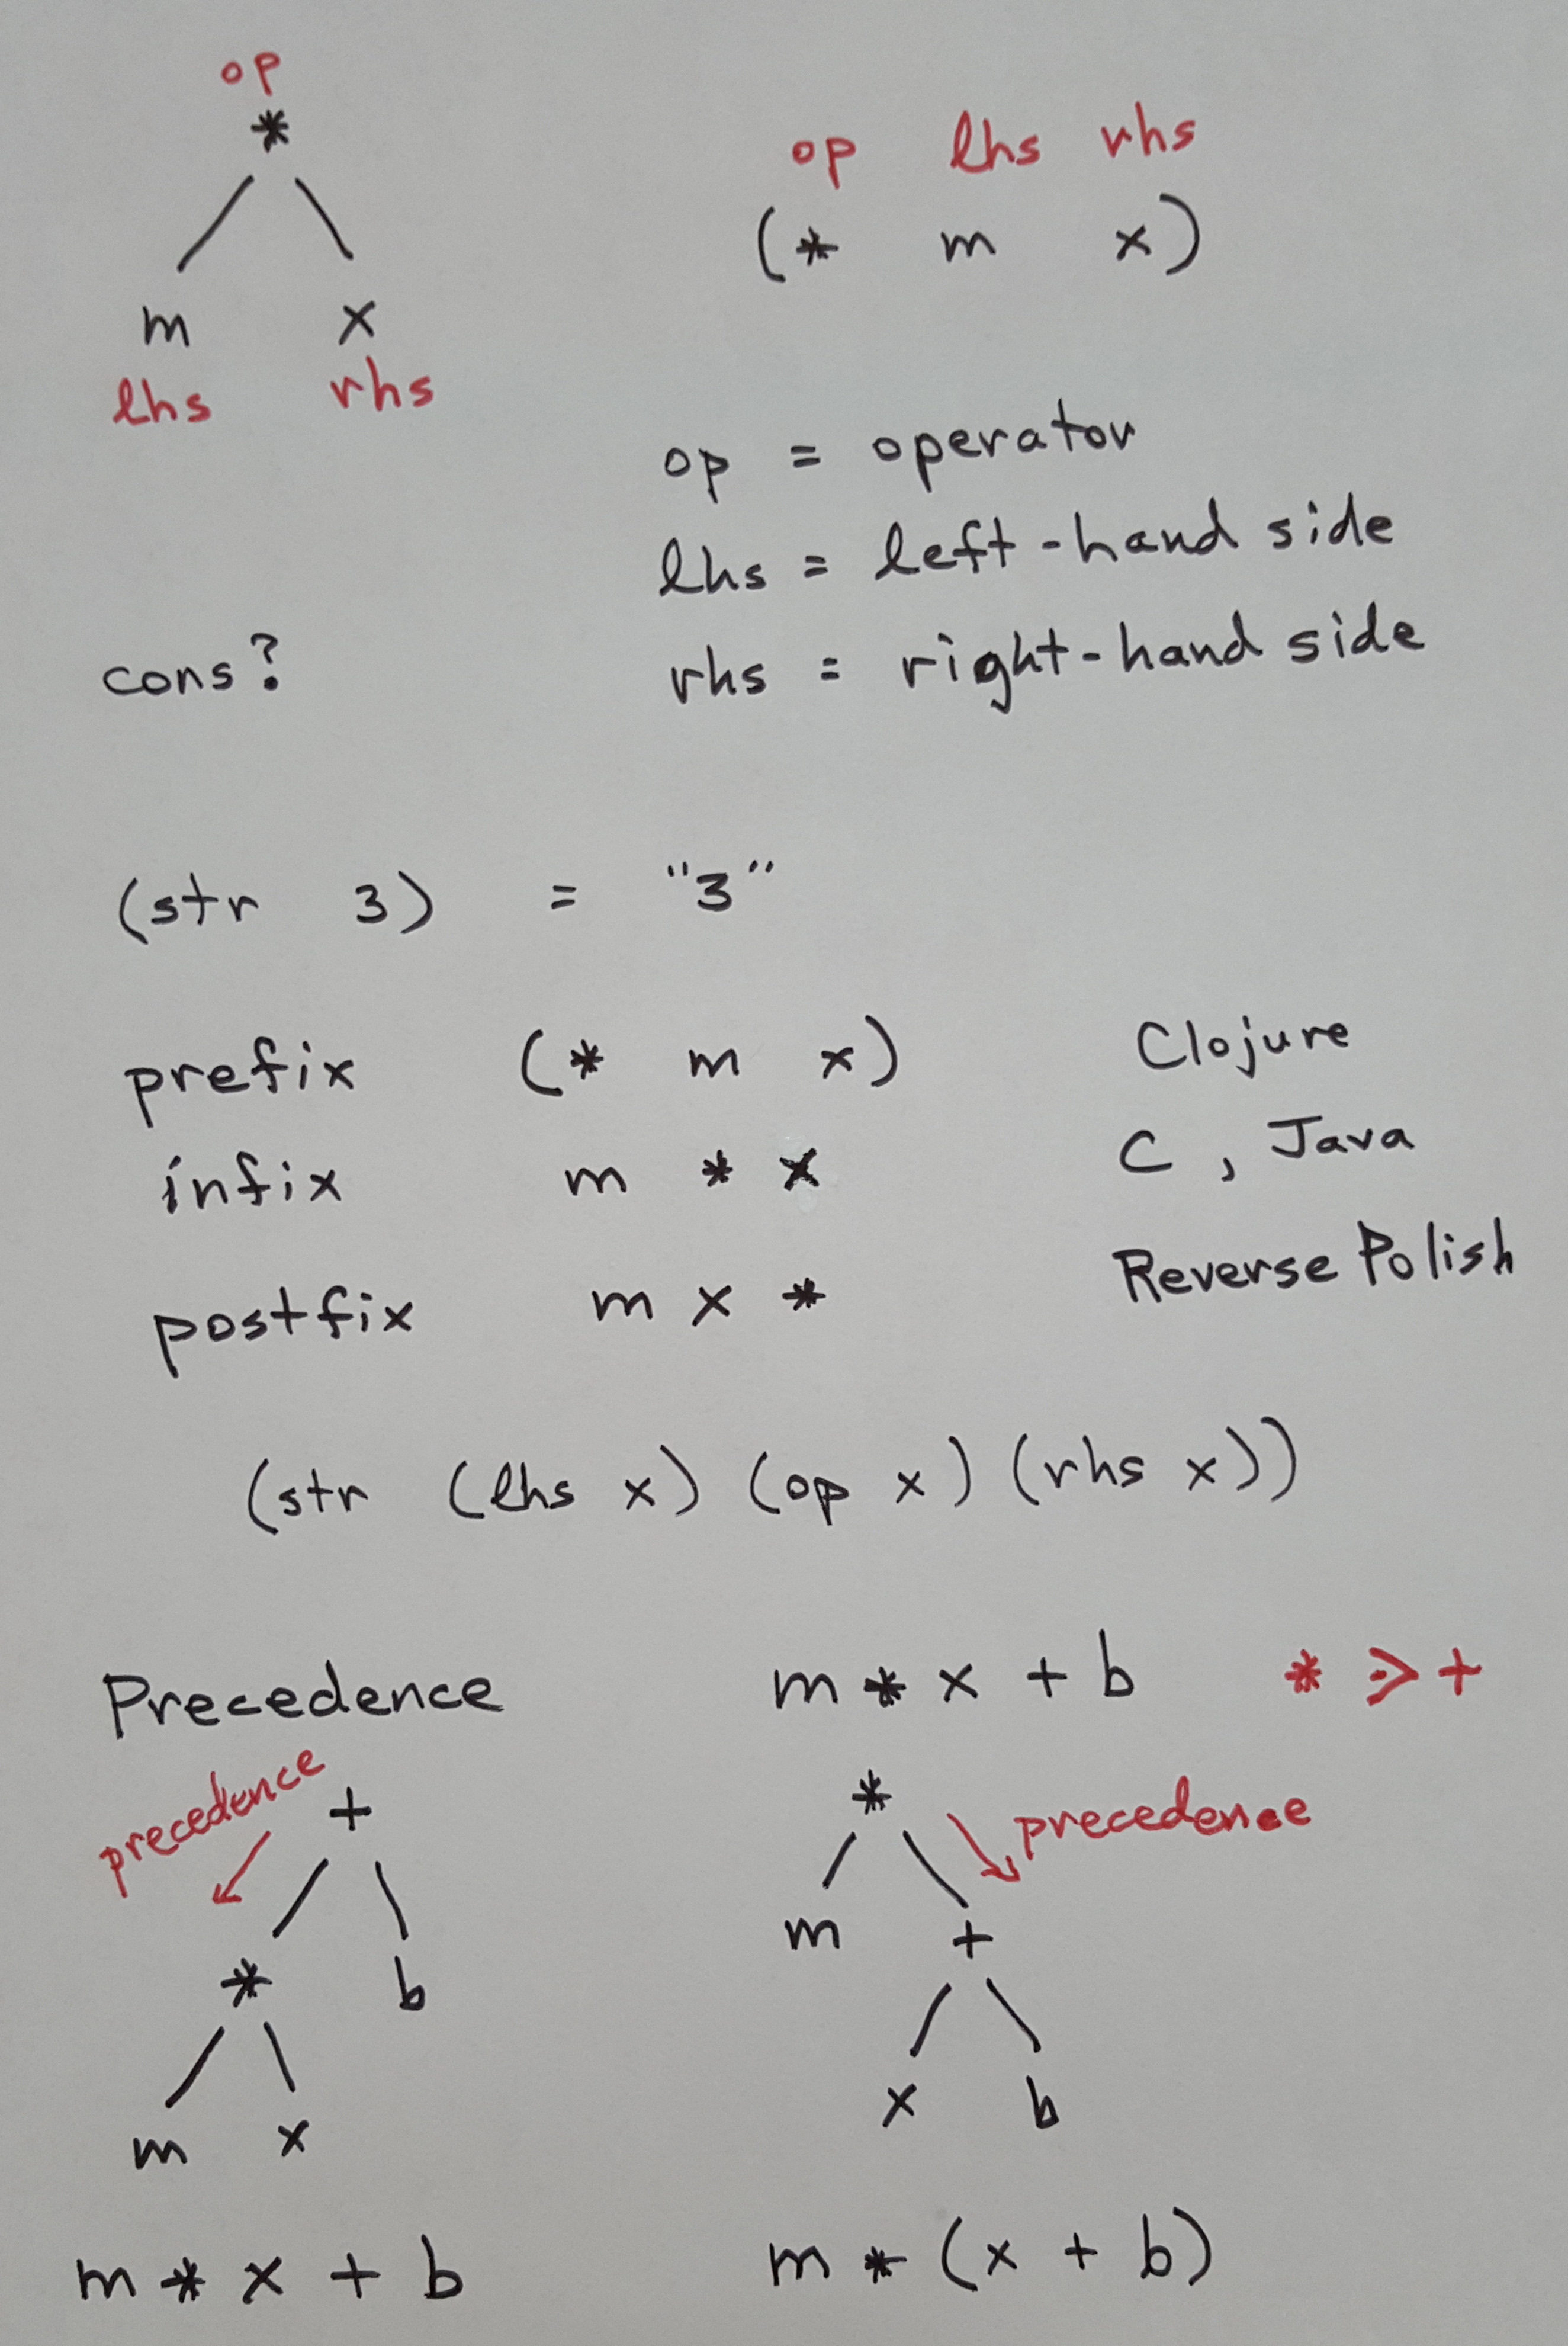 op
*
m x
lhs rhs
op lhs rhs
(* m x)
op = operator
lhs = left-hand side
rhs = right-hand side
cons?
(str 3) = "3"
prefix (* m x) Clojure
infix m * x C, Java
postfix m x * Reverse Polish
(str (lhs x) (op x) (rhs x))
Precedence m * x + b * ⋗ +
precedence
+
* b
m x
m * x + b
*
precedence
m +
x b
m * (x + b)